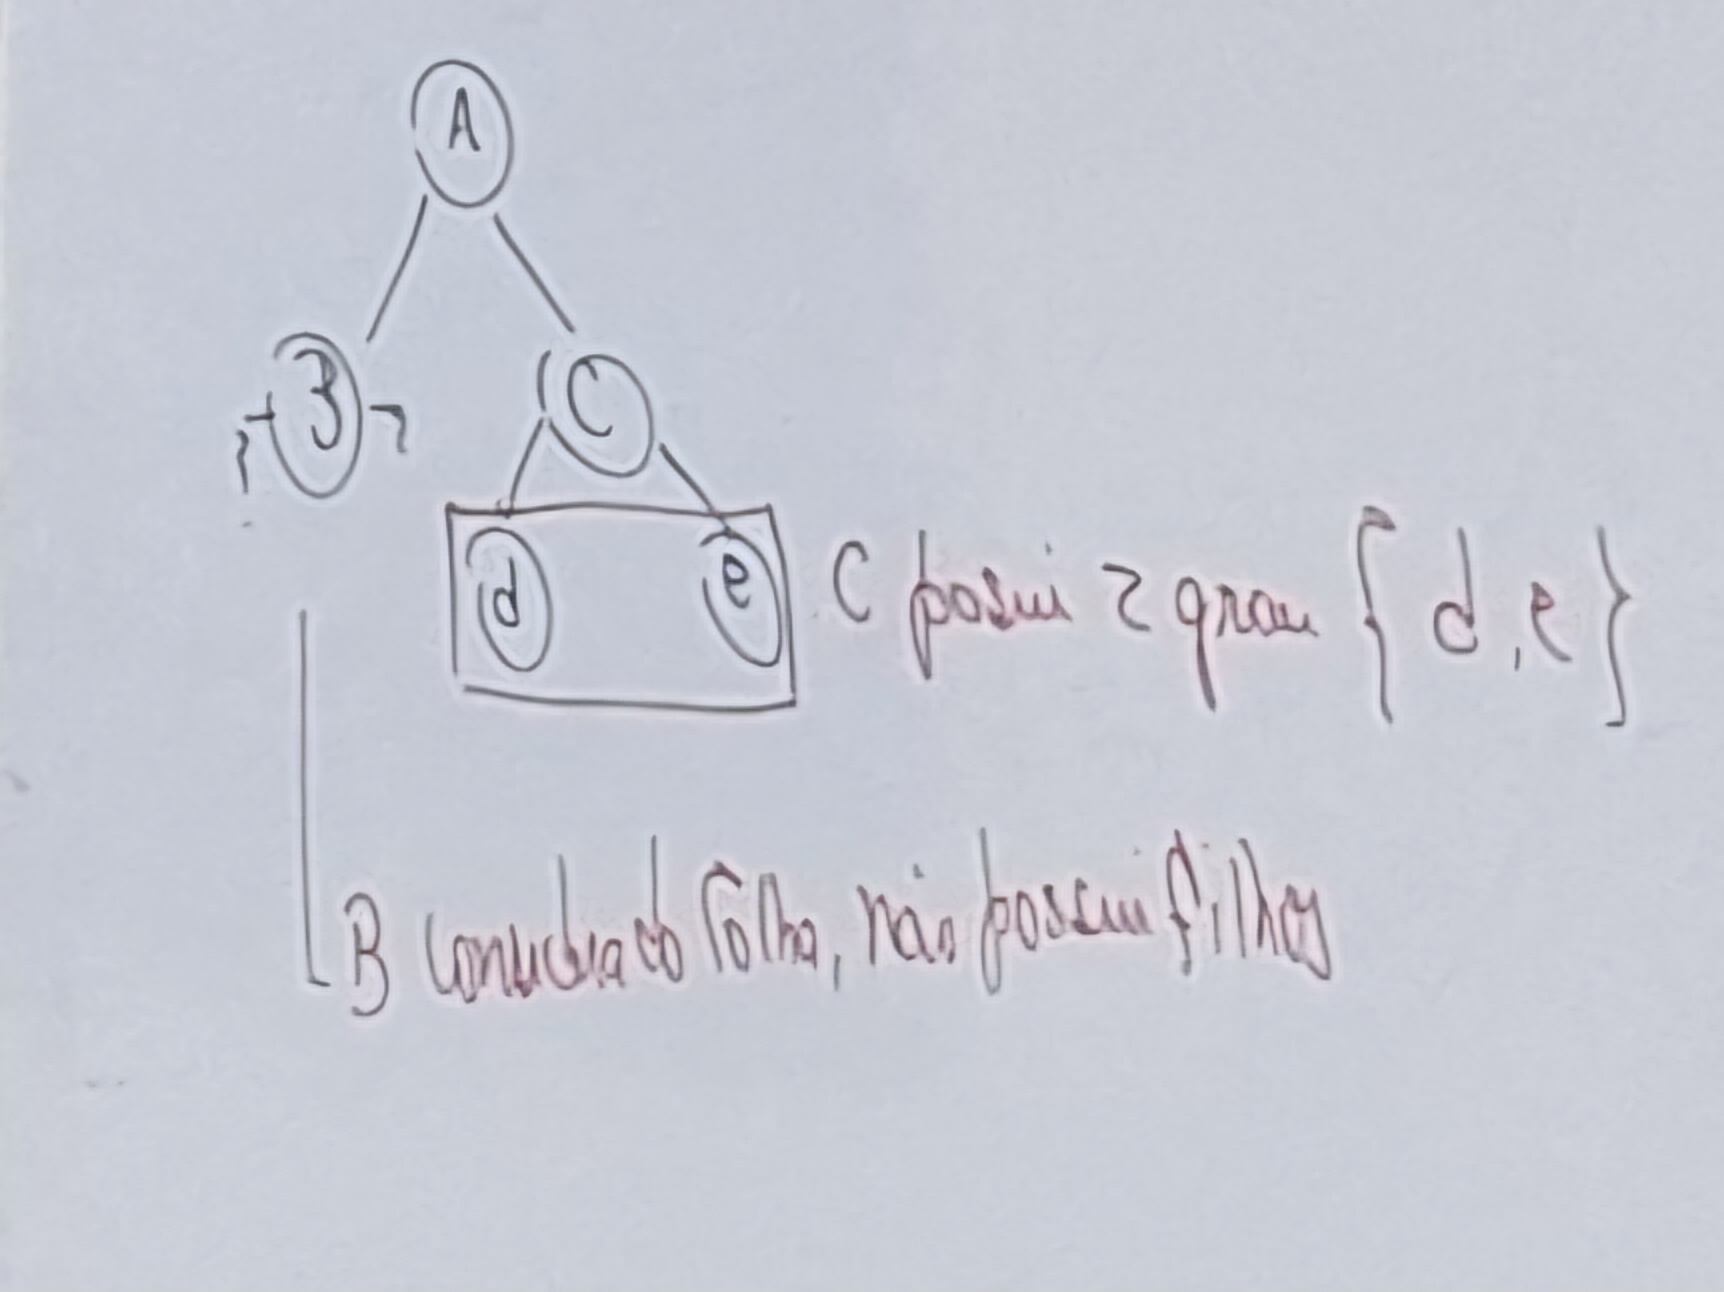 A
B
C
d
e
C possui 2 grau { d, e }
B considerado folha, não possui filhos